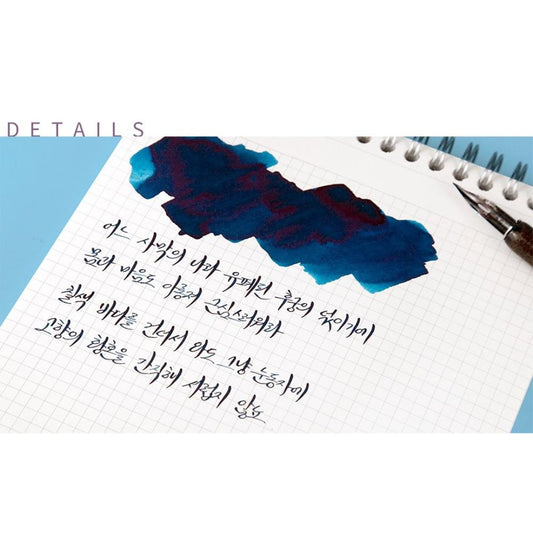 DETAILS
어느 사막의 나라 유폐된 후궁의 넋이기에
몸과 마음도 아롱져 근심스러워라
칠색 바다를 건너서 와도 그냥 눈동자에
고향의 황혼을 간직해 서럽지 않뇨